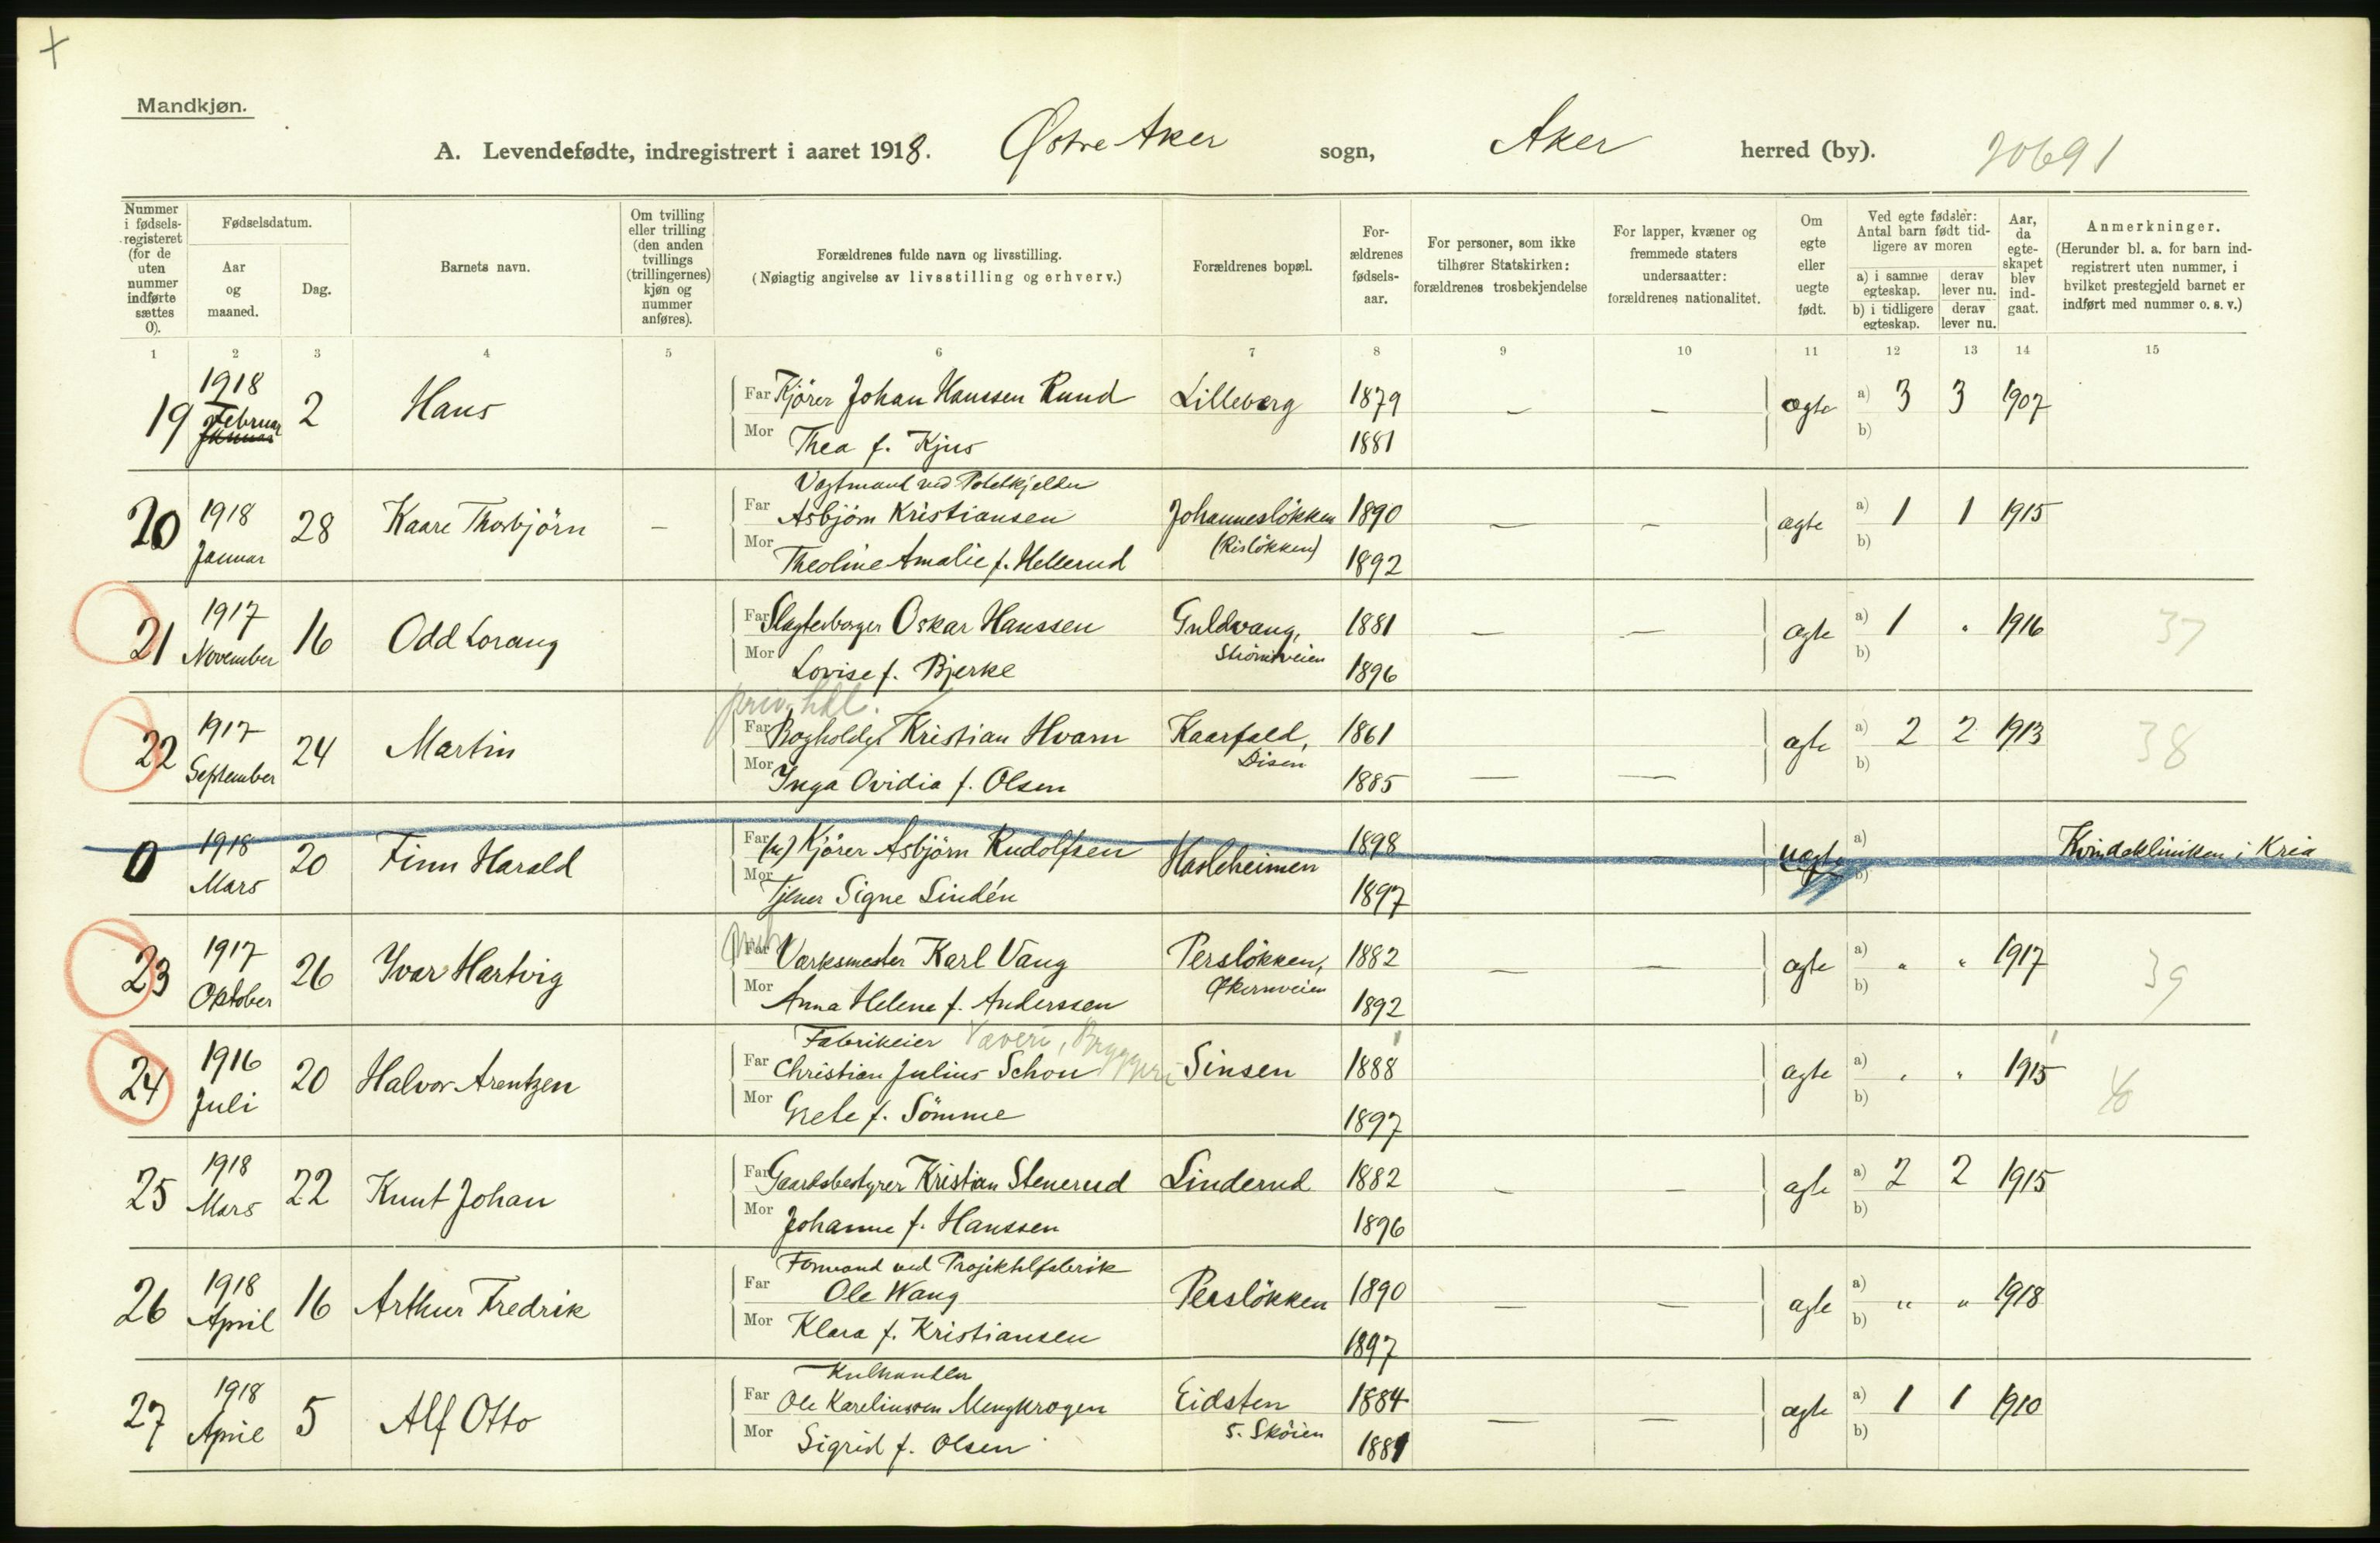 Mandkjøn.
A. Levendefødte, indregistrert i aaret 1918. Østre Aker sogn, Aker herred (by). 20691
Nummer i fødsels-registeret (for de uten nummer indførte sættes 0).
Fødselsdatum.
Aar og maaned.
Dag.
Barnets navn.
Om tvilling eller trilling (den anden tvillings (trillingernes) kjøn og nummer anføres).
Forældrenes fulde navn og livsstilling.
(Nøiagtig angivelse av livsstilling og erhverv.)
Forældrenes bopæl.
For-ældrenes fødsels-aar.
For personer, som ikke tilhører Statskirken: forældrenes trosbekjendelse
For lapper, kvæner og fremmede staters undersaatter: forældrenes nationalitet.
Om egte eller uegte født.
Ved egte fødsler: Antal barn født tid-ligere av moren
a) i samme egteskap. derav lever nu.
b) i tidligere egteskap. derav lever nu.
Aar, da egte-skapet blev ind-gaat.
Anmerkninger.
(Herunder bl. a. for barn ind-registrert uten nummer, i hvilket prestegjeld barnet er indført med nummer o. s. v.)
1 2 3 4 5 6 7 8 9 10 11 12 13 14 15
19 1918 Februar Januar 2 Hans Far Kjörer Johan Hanssen Rund Lilleberg 1879 — — ægte a) 3 3 1907
Mor Thea f. Kjus 1881 b)
Vagtmand ved Potetkjelder
20 1918 Januar 28 Kaare Thorbjörn — Far Asbjörn Kristiansen Johanneslökken 1890 — — ægte a) 1 1 1915
Mor Theoline Amalie f. Hellerud (Rislökken) 1892 b)
21 1917 November 16 Odd Lorang Far Slagterborger Oskar Hanssen Guldvang, 1881 — — ægte a) 1 " 1916 37
Mor Lovise f. Bjerke Strömsveien 1896 b)
priv. hdl.
22 1917 September 24 Martin Far Bogholder Kristian Hvam Kaarfald, 1861 ægte a) 2 2 1913 38
Mor Inga Ovidia f. Olsen Disen 1885 — — b)
0 1918 Mars 20 Finn Harald Far (u) Kjörer Asbjörn Rudolfsen Hasleheimen 1898 — — uægte a) Kvindekliniken i Kria
Mor Tjener Signe Lindén 1897 b)
23 1917 Oktober 26 Ivar Hartvig Far Værksmester Karl Vang Perslökken, 1882 — — ægte a) " " 1917 39
Mor Anna Helene f. Anderssen Økernveien 1892 b)
Fabrikeier Væveri, Bryggeri
24 1916 Juli 20 Halvor Arentzen Far Christian Julius Schou Sinsen 1888 ægte a) " " 1915 40
Mor Grete f. Sömme 1897 b)
25 1918 Mars 22 Knut Johan Far Gaardsbestyrer Kristian Stenerud Linderud 1882 — — ægte a) 2 2 1915
Mor Johanne f. Hanssen 1896 b)
Formand ved Projektilfabrik
26 1918 April 16 Arthur Fredrik Far Ole Wang Perslökken 1890 — — ægte a) " " 1918
Mor Klara f. Kristiansen 1897 b)
Kulhandler
27 1918 April 5 Alf Otto Far Ole Kareliussen Mengkrogen Eidsten 1884 — — ægte a) 1 1 1910
Mor Sigrid f. Olsen S. Sköien 1881 b)